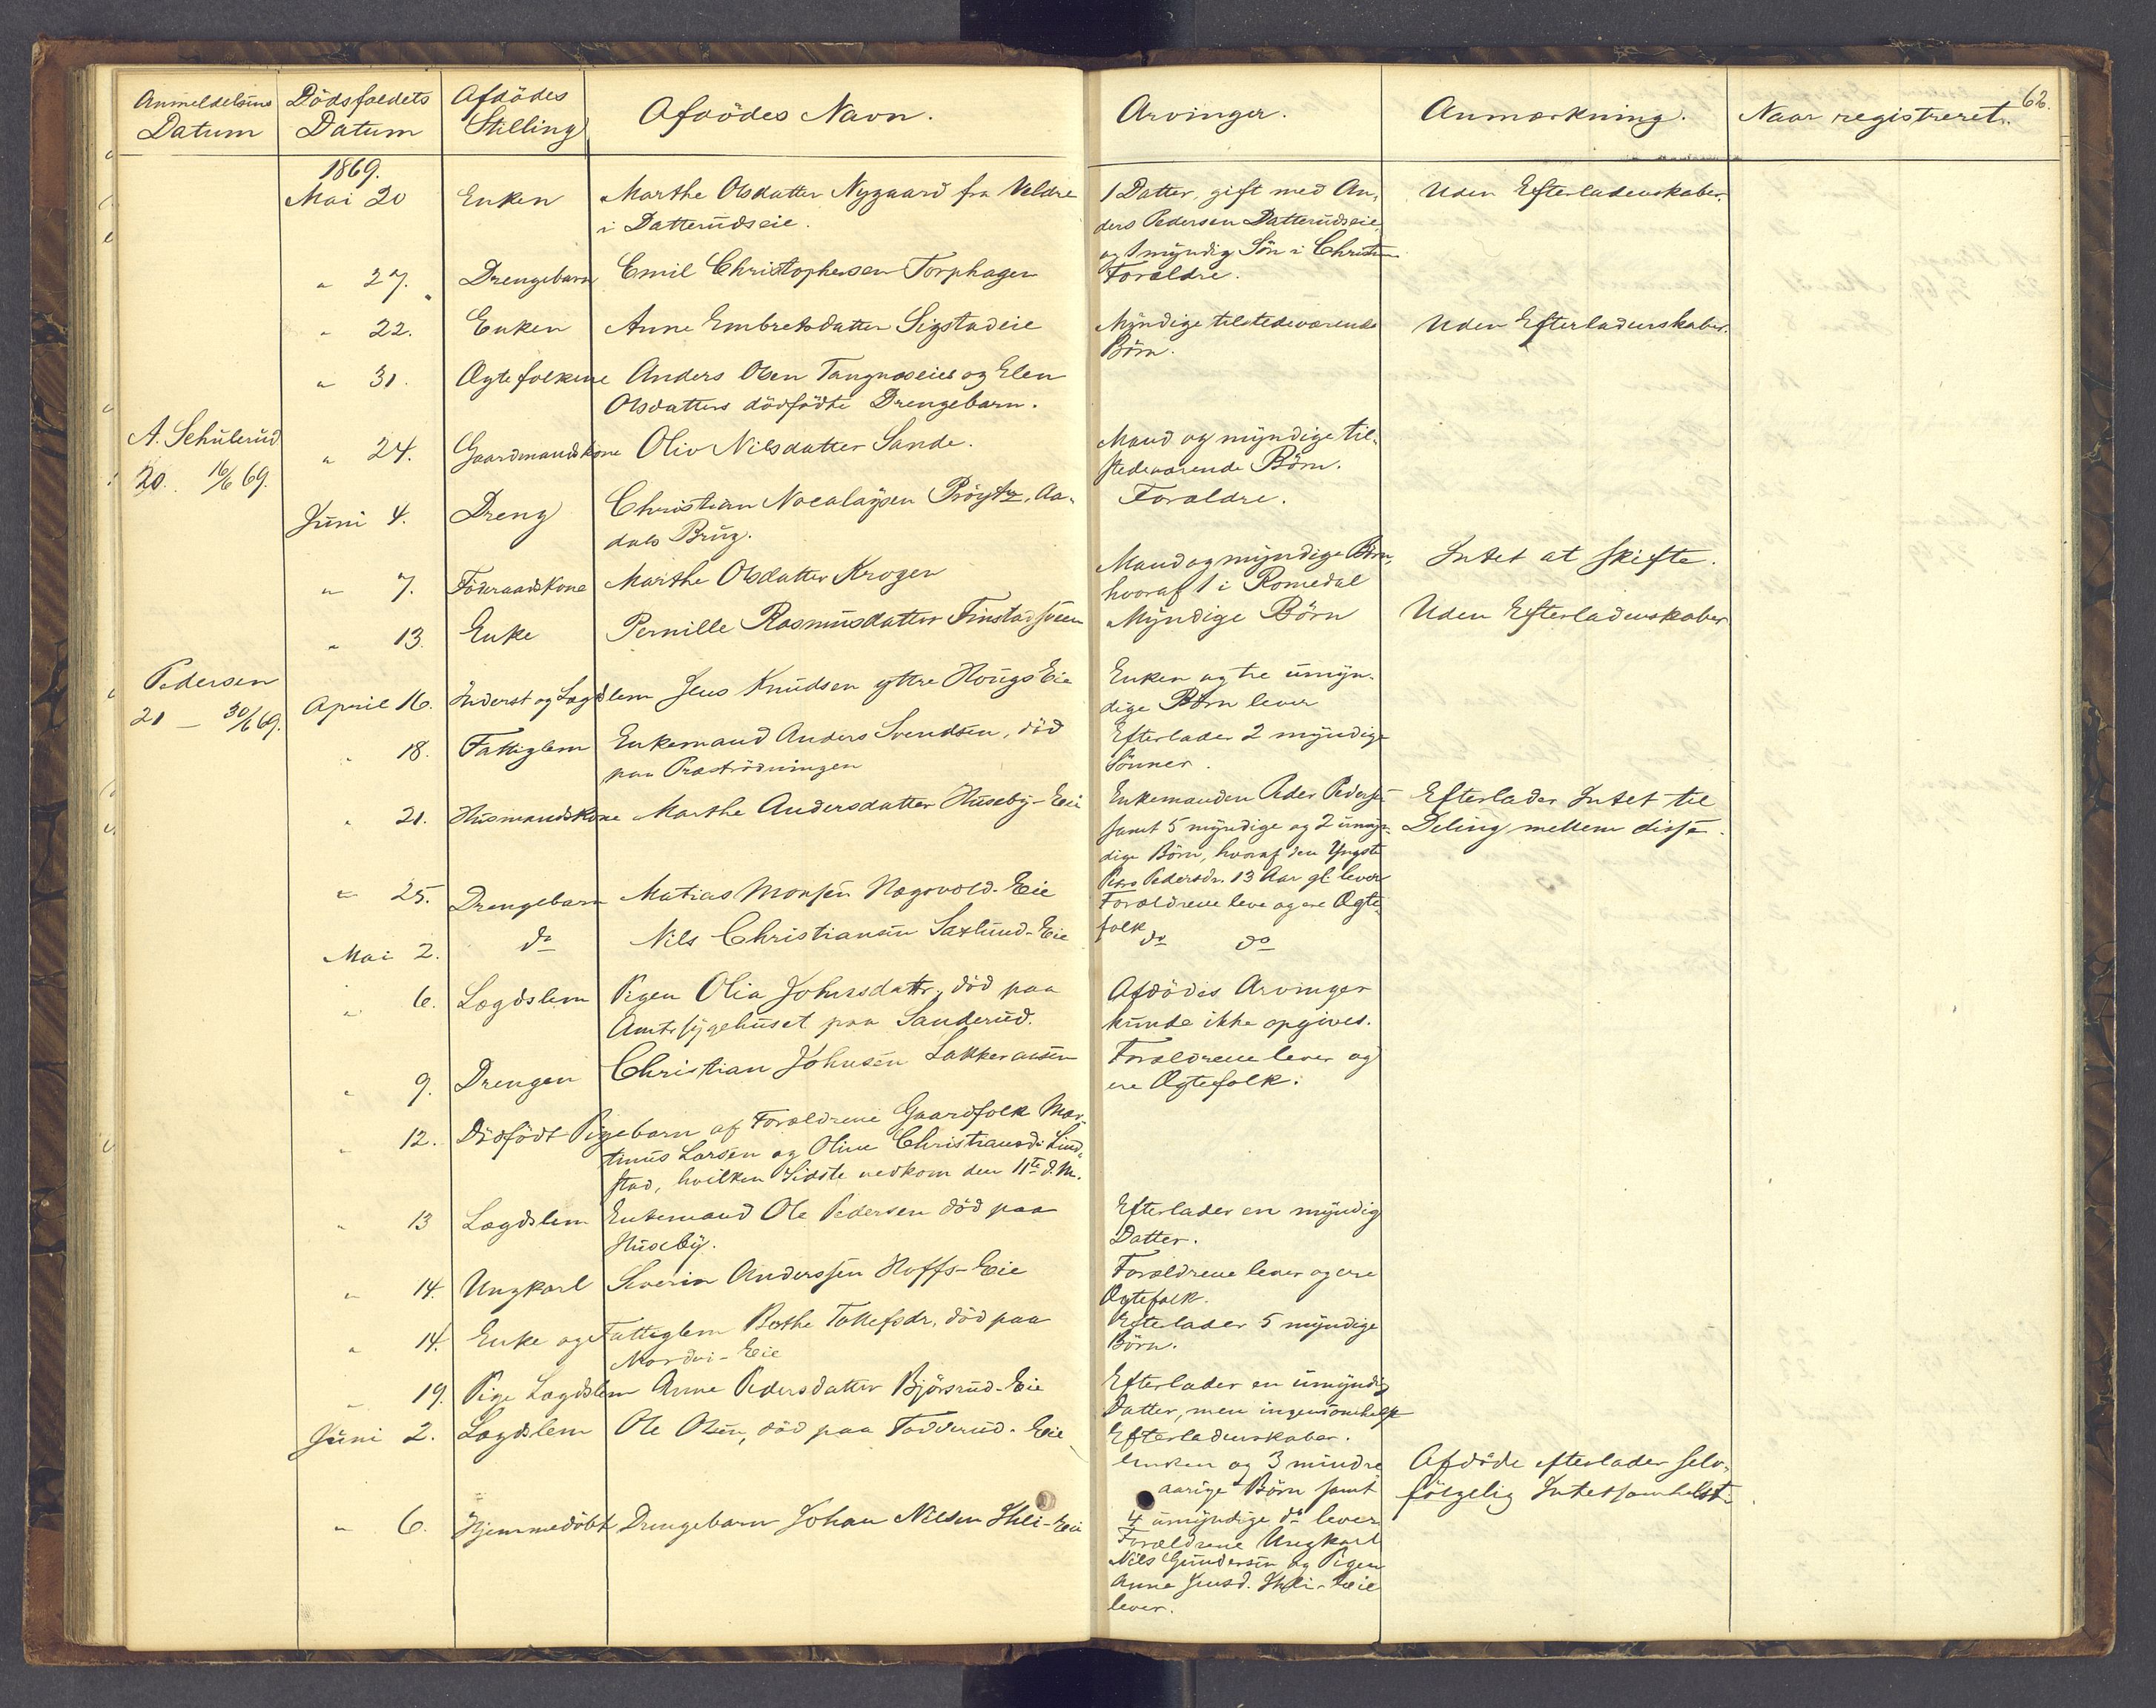 62.
Anmeldelsens Datum | Dödsfaldets Datum | Afdödes Stilling | Afdödes Navn. | Arvinger. | Anmærkning. | Naar registreret.
1869.
Mai 20 | Enken | Marthe Olsdatter Nygaard fra Veldre | 1 Datter, gift med An- | Uden Efterladenskaber.
i Datterudseie. | ders Pedersen Datterudseie,
og 1 myndig Sön i Christ
" 27. | Drengebarn | Emil Christophersen Torphagen | Forældre.
" 22. | Enken | Anne Embretsdatter Sigstadeie | Myndige tilstedeværende | Uden Efterladenskaber.
Börn.
" 31. | Ægtefolkene | Anders Olsen Tangnæseies og Elen
Olsdatters dödfödte Drengebarn.
A. Schulerud | " 24. | Gaardmandskone | Oliv Nilsdatter Sande. | Mand og myndige til-
20. 16/6 69. | stedeværende Börn.
Juni 4. | Dreng | Christian Nocolaysen Pröytz, Aa- | Forældre.
dals Brug.
" 7. | Föderaadskone | Marthe Olsdatter Krogen | Mand og myndige Börn, | Intet at skifte.
hvoraf 1 i Romedal
" 13. | Enke | Pernille Rasmusdatter Finstadsveen | Myndige Börn | Uden Efterladenskaber
Pedersen
21 — 30/6 69. | April 16. | Inderst og Lægdslem | Jens Knudsen yttre Hougs Eie | Enken og tre umyn-
dige Börn lever
" 18. | Fattiglem | Enkemand Anders Svendsen, död | Efterlader 2 myndige
paa Præströdningen | Sönner.
" 21. | Husmandskone | Marthe Andersdatter Huseby-Eie | Enkemanden Peder Pedersen | Efterlader Intet til
samt 5 myndige og 2 umyn- | Deling mellem disse.
dige Börn, hvoraf den Yngste
Pedersdr. 13 Aar gl. lever
" 25. | Drengebarn | Matias Monsen Nægsvold-Eie | Forældrene leve og ere Ægte-
folk
Mai 2. | do | Nils Christiansen Saxlund-Eie | do do
" 6. | Lægdslem | Pigen Olia Johnsdattr., död paa | Afdödes Arvinger
Amtssygehuset paa Sanderud. | kunde ikke opgives.
" 9. | Drengen | Christian Johnsen | Forældrene lever og
ere Ægtefolk.
" 12. | Dödfödt Pigebarn af Forældrene Gaardfolk Mar-
tinus Larsen og Oline Christiansdr. Lind-
stad, hvilken Sidste nedkom den 11te d. M.
" 13 | Lægdslem | Enkemand Ole Pedersen död paa | Efterlader en myndig
Huseby. | Datter.
" 14. | Ungkarl | Severin Anderssen Hoffs-Eie | Forældrene lever og ere
Ægtefolk.
" 14. | Enke og Fattiglem | Berthe Tollefsdr., död paa | Efterlader 5 myndige
Nordvi-Eie | Börn.
" 19. | Pige Lægdslem | Anne Pedersdatter Björsrud-Eie | Efterlader en umyndig
Datter, men ingensomhelst
Efterladenskaber.
Juni 2. | Lægdslem | Ole Olsen, död paa Fodderud-Eie | Enken og 3 mindre- | Afdöde efterlader selv-
aarige Börn samt | fölgelig Intetsomhelst.
4 umyndige do lever
" 6. | Hjemmedöbt | Drengebarn Johan Nilsen Ihli-Eie | Forældrene Ungkarl
Nils Gundersen og Pigen
Anne Jensd. Ihli-Eie
lever.